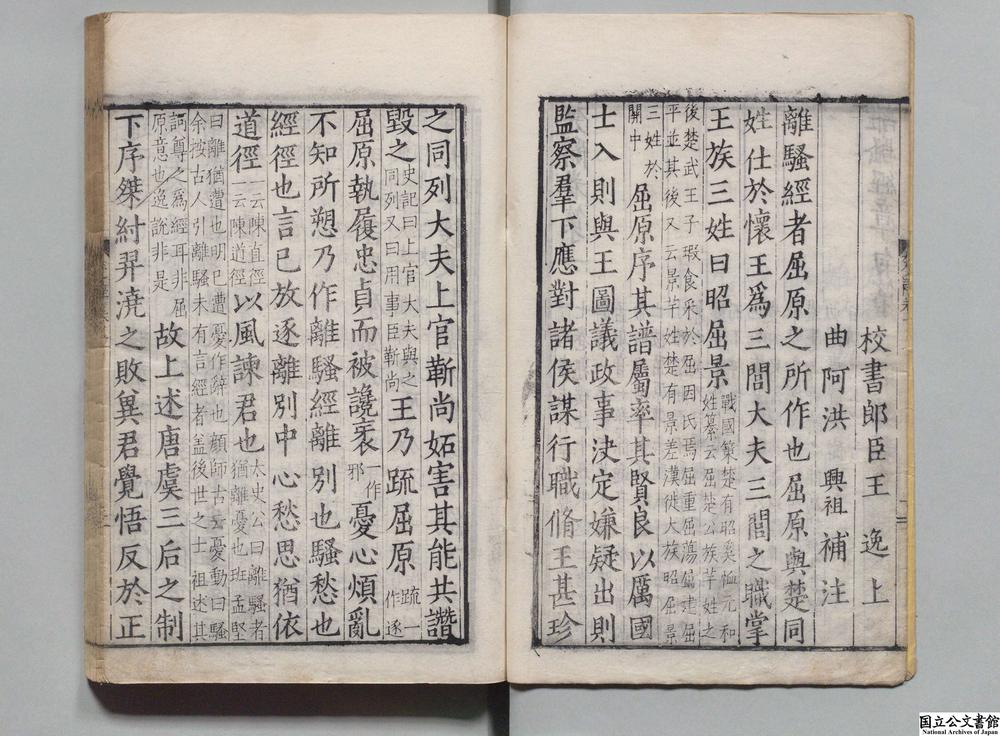 校書郎臣王 逸 上
曲阿洪 興祖 補注
離騷經者屈原之所作也屈原與楚同
姓仕於懷王爲三閭大夫三閭之職掌
王族三姓曰昭屈景戰國策楚有昭奚恤元和
姓纂云屈楚公族芈姓之
後楚武王子瑕食采於屈因氏焉屈重屈蕩屈建屈
平並其後又云景芈姓楚有景差漢徙大族昭屈景
三姓於
關中屈原序其譜屬率其賢良以厲國
士入則與王圖議政事決定嫌疑出則
監察羣下應對諸侯謀行職脩王甚珍
之同列大夫上官靳尚妬害其能共譖
毀之史記曰上官大夫與之
同列又曰用事臣靳尚王乃疏屈原疏一
作逐
屈原執履忠貞而被讒衺一作
邪憂心煩亂
不知所愬乃作離騷經離別也騷愁也
經徑也言已放逐離別中心愁思猶依
道徑一云陳直徑
一云陳道徑以風諫君也太史公曰離騷者
猶離憂也班孟堅
曰離猶遭也明已遭憂作辭也顏師古云憂動曰騷
余按古人引離騷未有言經者盖後世之士祖述其
詞尊之爲經耳非屈
原意也逸說非是故上述唐虞三后之制
下序桀紂羿澆之敗兾君覺悟反於正
国立公文書館
National Archives of Japan